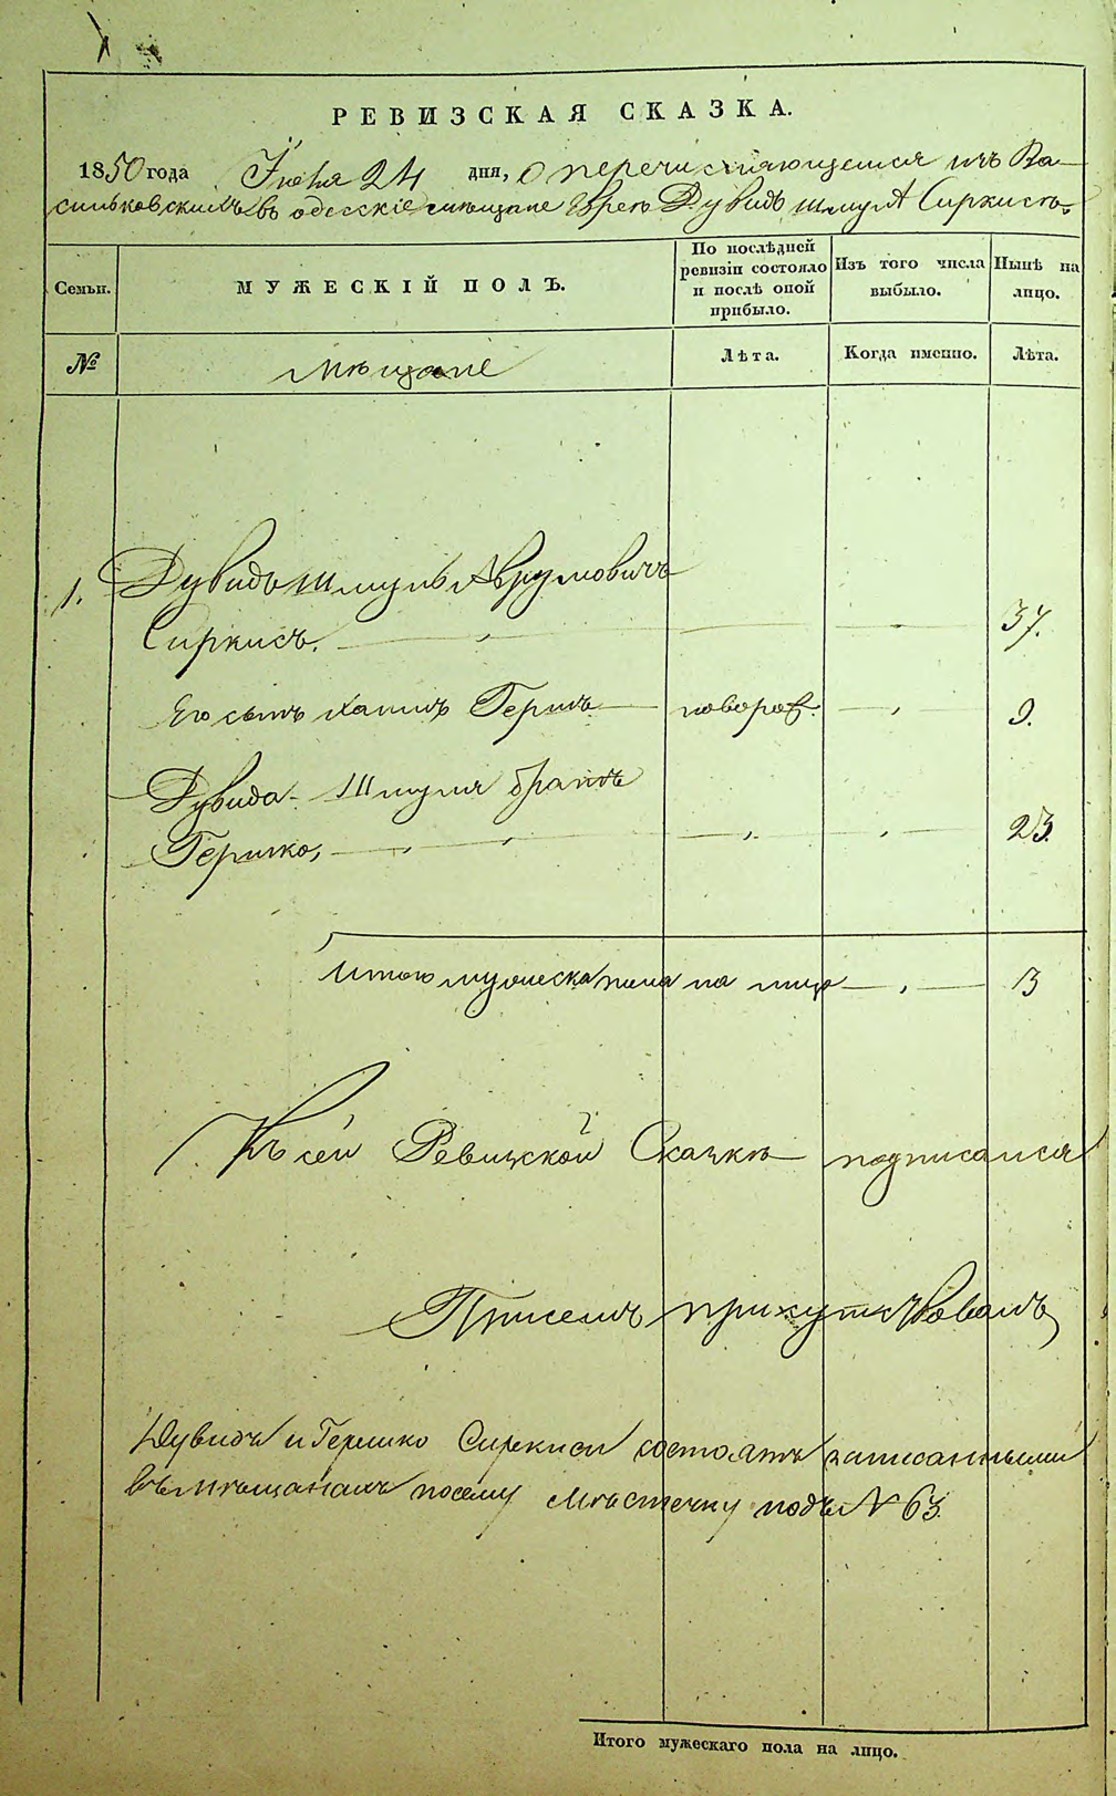 РЕВИЗСКАЯ СКАЗКА.
1850 года Іюня 24 дня, о перечисляющемся изъ Ва-
сильковскихъ въ одесскіе мѣщане Еврее Дувидъ Шмуле Сиркисѣ.
Семьи.
МУЖЕСКІЙ ПОЛЪ.
По послѣдней ревизіи состояло и послѣ оной прибыло.
Изъ того числа выбыло.
Нынѣ на лицо.
№
мѣщане
Лѣта.
Когда именно.
Лѣта.
1. Дувидъ Шмуль Аврумовичъ
Сиркисъ. 37.
Его сынъ Хаимъ Гершъ новорож. 9.
Дувида-Шмуля братъ
Гершко, 23.
Итого мужеска пола на лицо 3
Къ сей Ревизской Сказкѣ подписался
При семъ присутствовалъ
Дувидъ и Гершко Сиркиси состоятъ записанными
въ мѣщанахъ посему Мѣстечку подъ № 63.
Итого мужескаго пола на лицо.